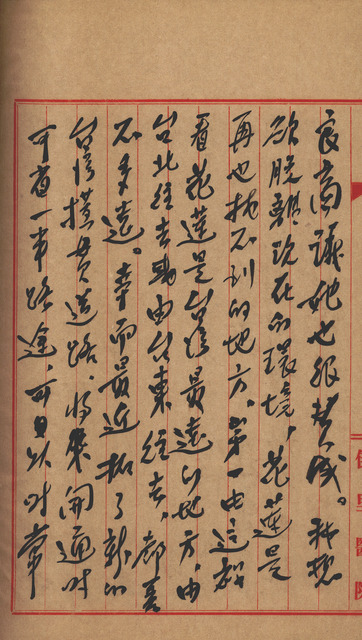 良商議她也很贊成。我想
欲脫離現在的環境，花蓮是
再也找不到的地方。第一由這裡
看花蓮是台灣最遠的地方，由
台北往去或由台東往去，都差
不多遠。幸而最近拓了新的
台灣橫貫道路，將來開通時
可省一半路途，可是以時常
醫院